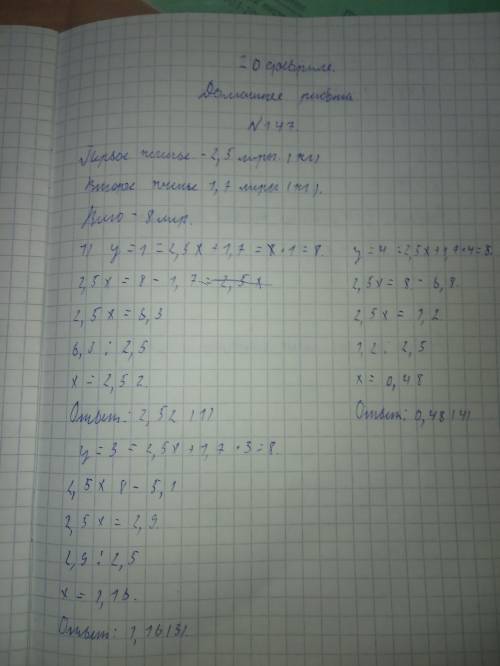 20 февраля.
Домашняя работа
N 147.
Первое печенье - 2,5 лиры (кг)
Второе печенье 1,7 лиры (кг).
Всего - 8 лир.
1) y = 1 = 2,5x + 1,7 = x • 1 = 8.
2,5x = 8 - 1,7 = 2,5x
2,5x = 6,3
6,3 : 2,5
x = 2,52.
Ответ: 2,52 (1)
y = 3 = 2,5x + 1,7 • 3 = 8.
2,5x 8 - 5,1
2,5x = 2,9.
2,9 : 2,5
x = 1,16.
Ответ: 1,16(3).
y = 4 = 2,5x + 1,7 • 4 = 8.
2,5x = 8 - 6,8.
2,5x = 1,2
1,2 : 2,5
x = 0,48
Ответ: 0,48 (4)